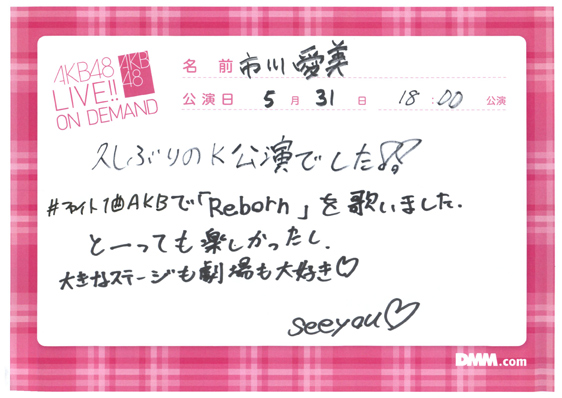 AKB48
LIVE!!
ON DEMAND
AKB
48
名前 市川愛美
公演日 5月31日 18:00 公演
久しぶりのK公演でした!!
#ネイト1曲AKBで「Reborn」を歌いました.
とーっても楽しかったし.
大きなステージも劇場も大好き♡
seeyou♡
DMM.com